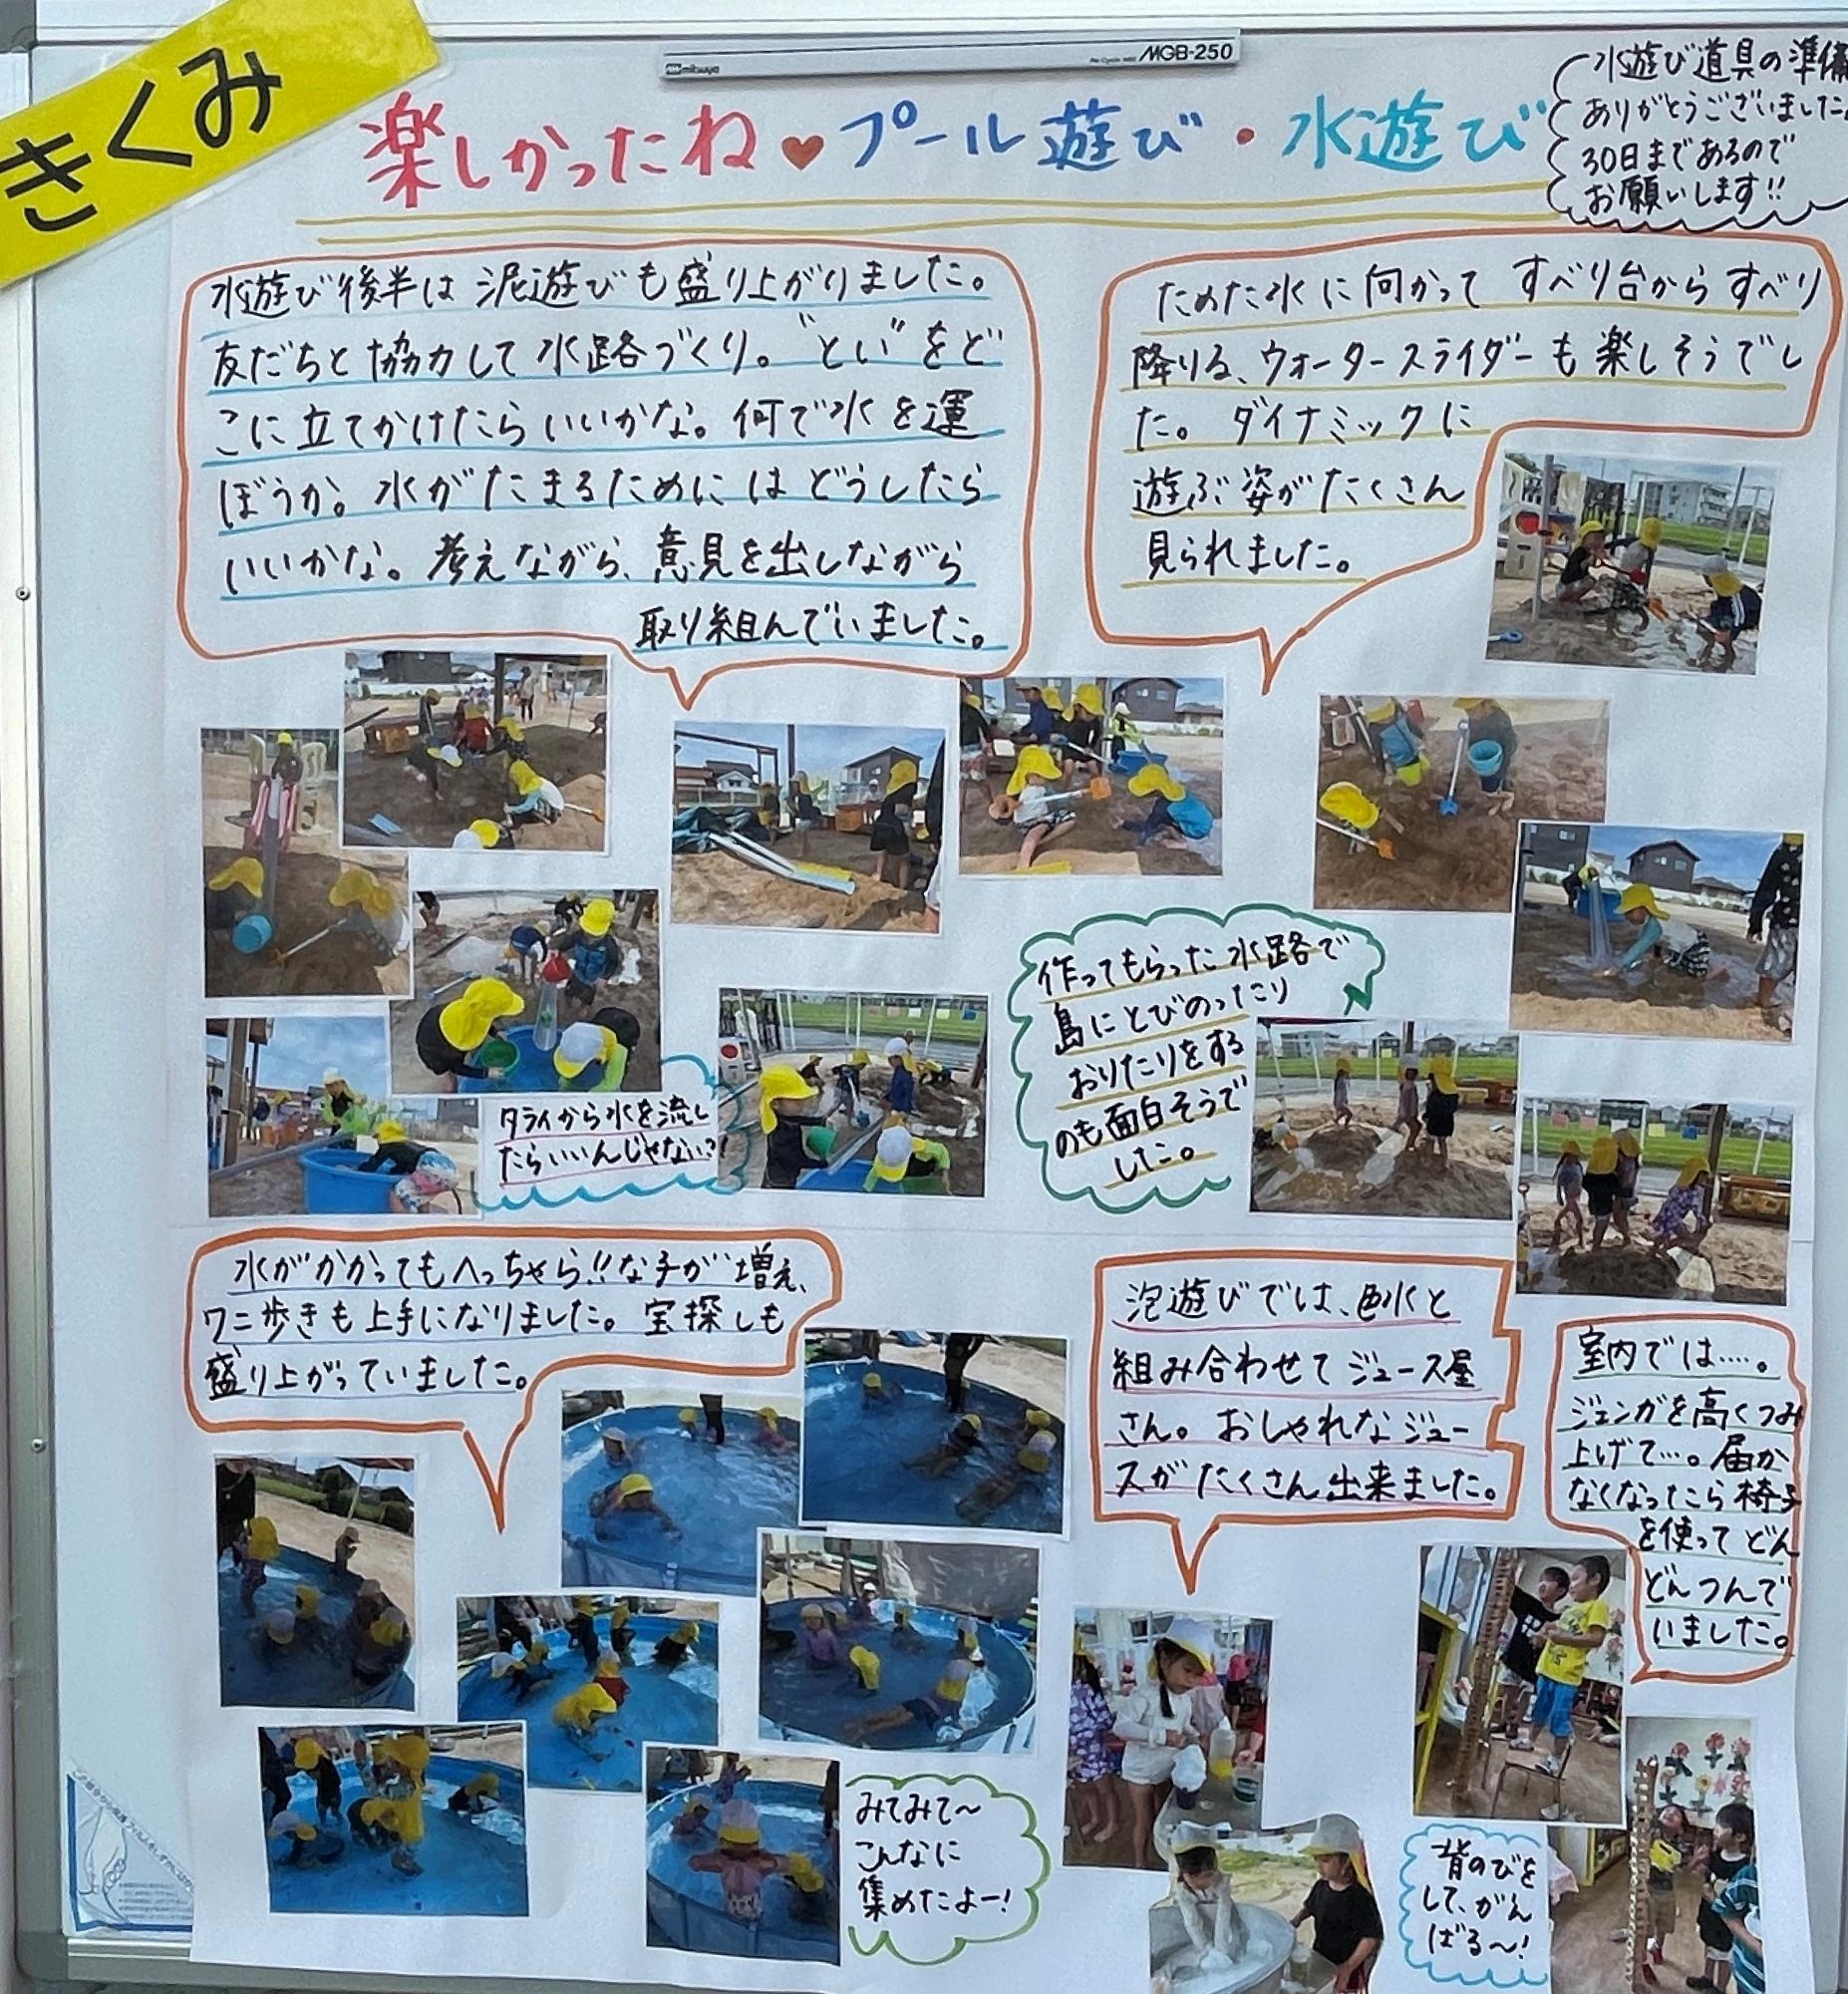 きくみ
mitsuya
MGB-250
楽しかったね♥プール遊び・水遊び
水遊び道具の準備
ありがとうございました
30日まであるので
お願いします!!
水遊び後半は泥遊びも盛り上がりました。
友だちと協力して水路づくり。"とい"をど
こに立てかけたらいいかな。何で水を運
ぼうか。水がたまるためにはどうしたら
いいかな。考えながら、意見を出しながら
取り組んでいました。
ためた水に向かってすべり台からすべり
降りる、ウォータースライダーも楽しそうでし
た。ダイナミックに
遊ぶ姿がたくさん
見られました。
作ってもらった水路で
島にとびのったり
おりたりをする
のも面白そうで
した。
タライから水を流し
たらいいんじゃない?!
水がかかってもへっちゃら!!な子が増え、
ワニ歩きも上手になりました。宝探しも
盛り上がっていました。
泡遊びでは、色水と
組み合わせてジュース屋
さん。おしゃれなジュー
スがたくさん出来ました。
室内では‥‥。
ジェンガを高くつみ
上げて…。届か
なくなったら椅子
を使ってどん
どんつんで
いました。
みてみて〜
こんなに
集めたよー!
背のびを
して、がん
ばる〜!